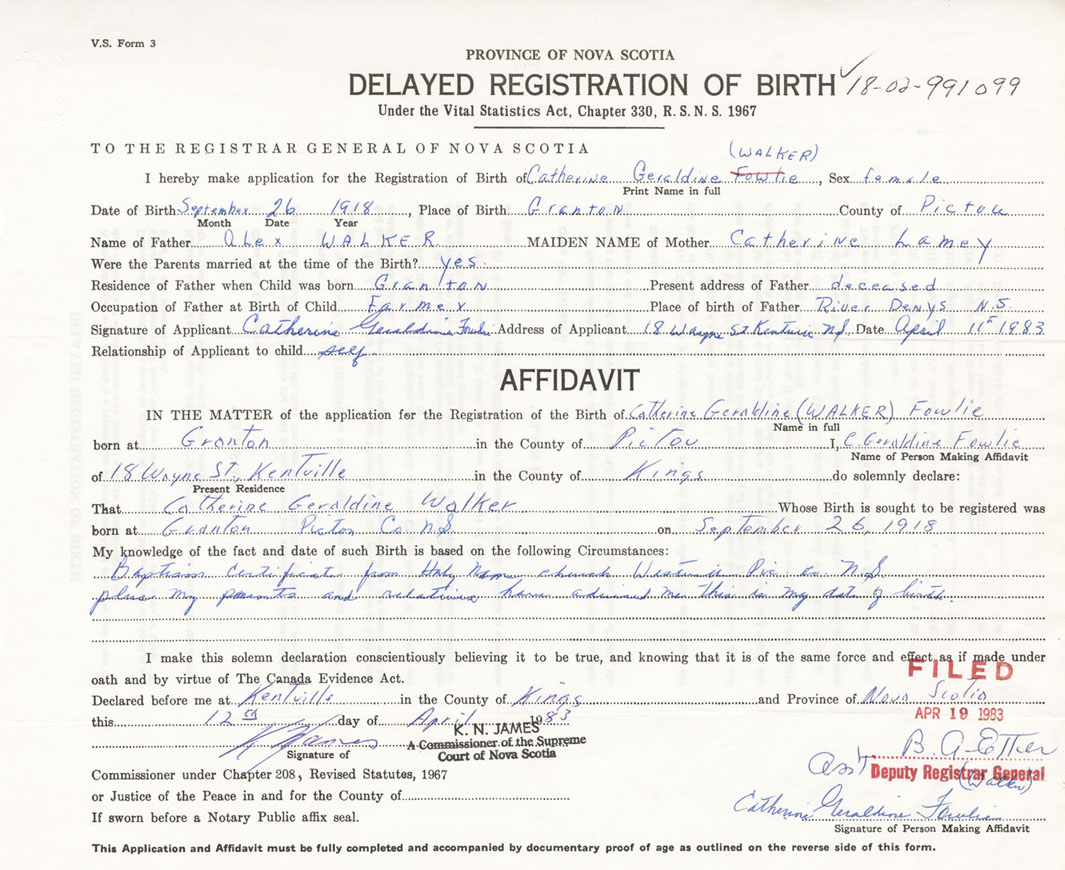 V.S. Form 3
PROVINCE OF NOVA SCOTIA
DELAYED REGISTRATION OF BIRTH ✓18-02-991099
Under the Vital Statistics Act, Chapter 330, R.S.N.S. 1967
TO THE REGISTRAR GENERAL OF NOVA SCOTIA (WALKER)
I hereby make application for the Registration of Birth of Catherine Geraldine Fowlie, Sex female
Print Name in full
Date of Birth September 26 1918, Place of Birth Granton County of Pictou
Month Date Year
Name of Father Alex WALKER MAIDEN NAME of Mother Catherine Lamey
Were the Parents married at the time of the Birth? yes.
Residence of Father when Child was born Granton Present address of Father deceased
Occupation of Father at Birth of Child Farmer Place of birth of Father River Denys N.S.
Signature of Applicant Catherine Geraldine Fowlie Address of Applicant 18 Wayne St Date April 11 1983
Relationship of Applicant to child self
AFFIDAVIT
IN THE MATTER of the application for the Registration of the Birth of Catherine Geraldine (WALKER) Fowlie
Name in full
born at Granton in the County of Pictou I, C. Geraldine Fowlie
Name of Person Making Affidavit
of 18 Wayne St., Kentville in the County of Kings do solemnly declare:
Present Residence
That Catherine Geraldine Walker Whose Birth is sought to be registered was
born at Granton Pictou Co NS on September 26, 1918
My knowledge of the fact and date of such Birth is based on the following Circumstances:
Baptism Certificate from Holy Name church N.S.
plus my parents and relatives have advised me this is my date of birth.
I make this solemn declaration conscientiously believing it to be true, and knowing that it is of the same force and effect as if made under
oath and by virtue of The Canada Evidence Act.
FILED
Declared before me at Kentville in the County of Kings and Province of Nova Scotia
APR 19 1983
this 12 day of April 1983
K. N. JAMES
A Commissioner of the Supreme
Court of Nova Scotia
K James
Signature of
B. A. Etter
Asst Deputy Registrar General
Commissioner under Chapter 208, Revised Statutes, 1967
(Walker)
or Justice of the Peace in and for the County of
Catherine Geraldine Fowlie
If sworn before a Notary Public affix seal.
Signature of Person Making Affidavit
This Application and Affidavit must be fully completed and accompanied by documentary proof of age as outlined on the reverse side of this form.